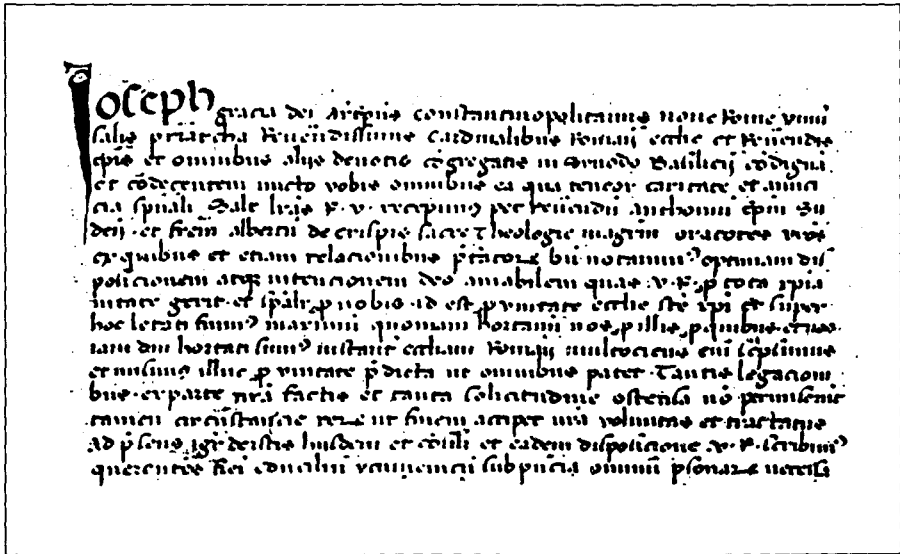 Joseph gracia dei Arcepus constantinopolitanus noue Rome vniu
salis priarcha Reuerendissimis Cardinalibus Romani ecclie et Reuendis
epis et omnibus alijs deuotis cogregatis in Synodo Basiliesi codigna
et codecentem vobis omnibus ea qua teneor caritate et amici
cia spuali Salt lras R. v. recepimus per Reuendu anthoniu epm Su
deu. et frem albertu de crispis sacre Theologie magrm oratores vros
ex quibus et etiam relacionibus pdictor bn notauimus optimam dis
posicionem atq intencionem deo amabilem quae v. R. p tota xpia
nitate gerit. et spalr p nobis. id est p vnitate ecclie ste xpi et super
hoc letati sumus maximi quoniam hortamini nos p illis p quibus et nos
iam diu hortati sumus ecclesiam Romani multociens eni scpsimus
et misimus illuc p vnitate pdicta ut omnibus patet. Tantis legacioni
bus. ex parte nra factis et tanta solicitudine ostensa no pmiserunt
tamen circustancie ut finem acciperet nra voluntas et tractatus
ad psens. et cosili et eadem disposicione v. R. scribimus
querentes sub pncia omniu psonar necessi